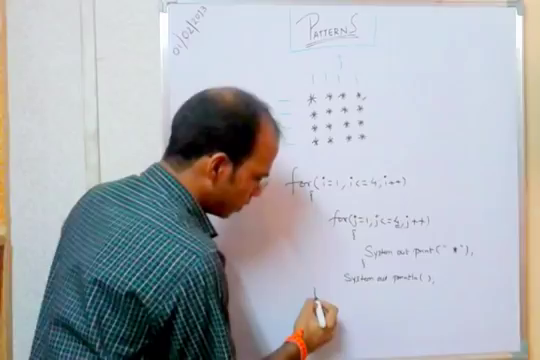 01/02/2013
PATTERNS
* * * *
* * * *
* * * *
* * * *
for(i=1, i<=4, i++)
{
for(j=1, j<=4, j++)
{
System out print(" *"),
}
System out println( ),